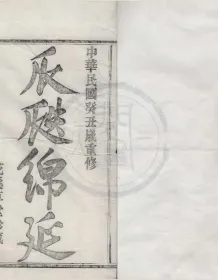 中華民國癸丑歲重修
瓜瓞綿延